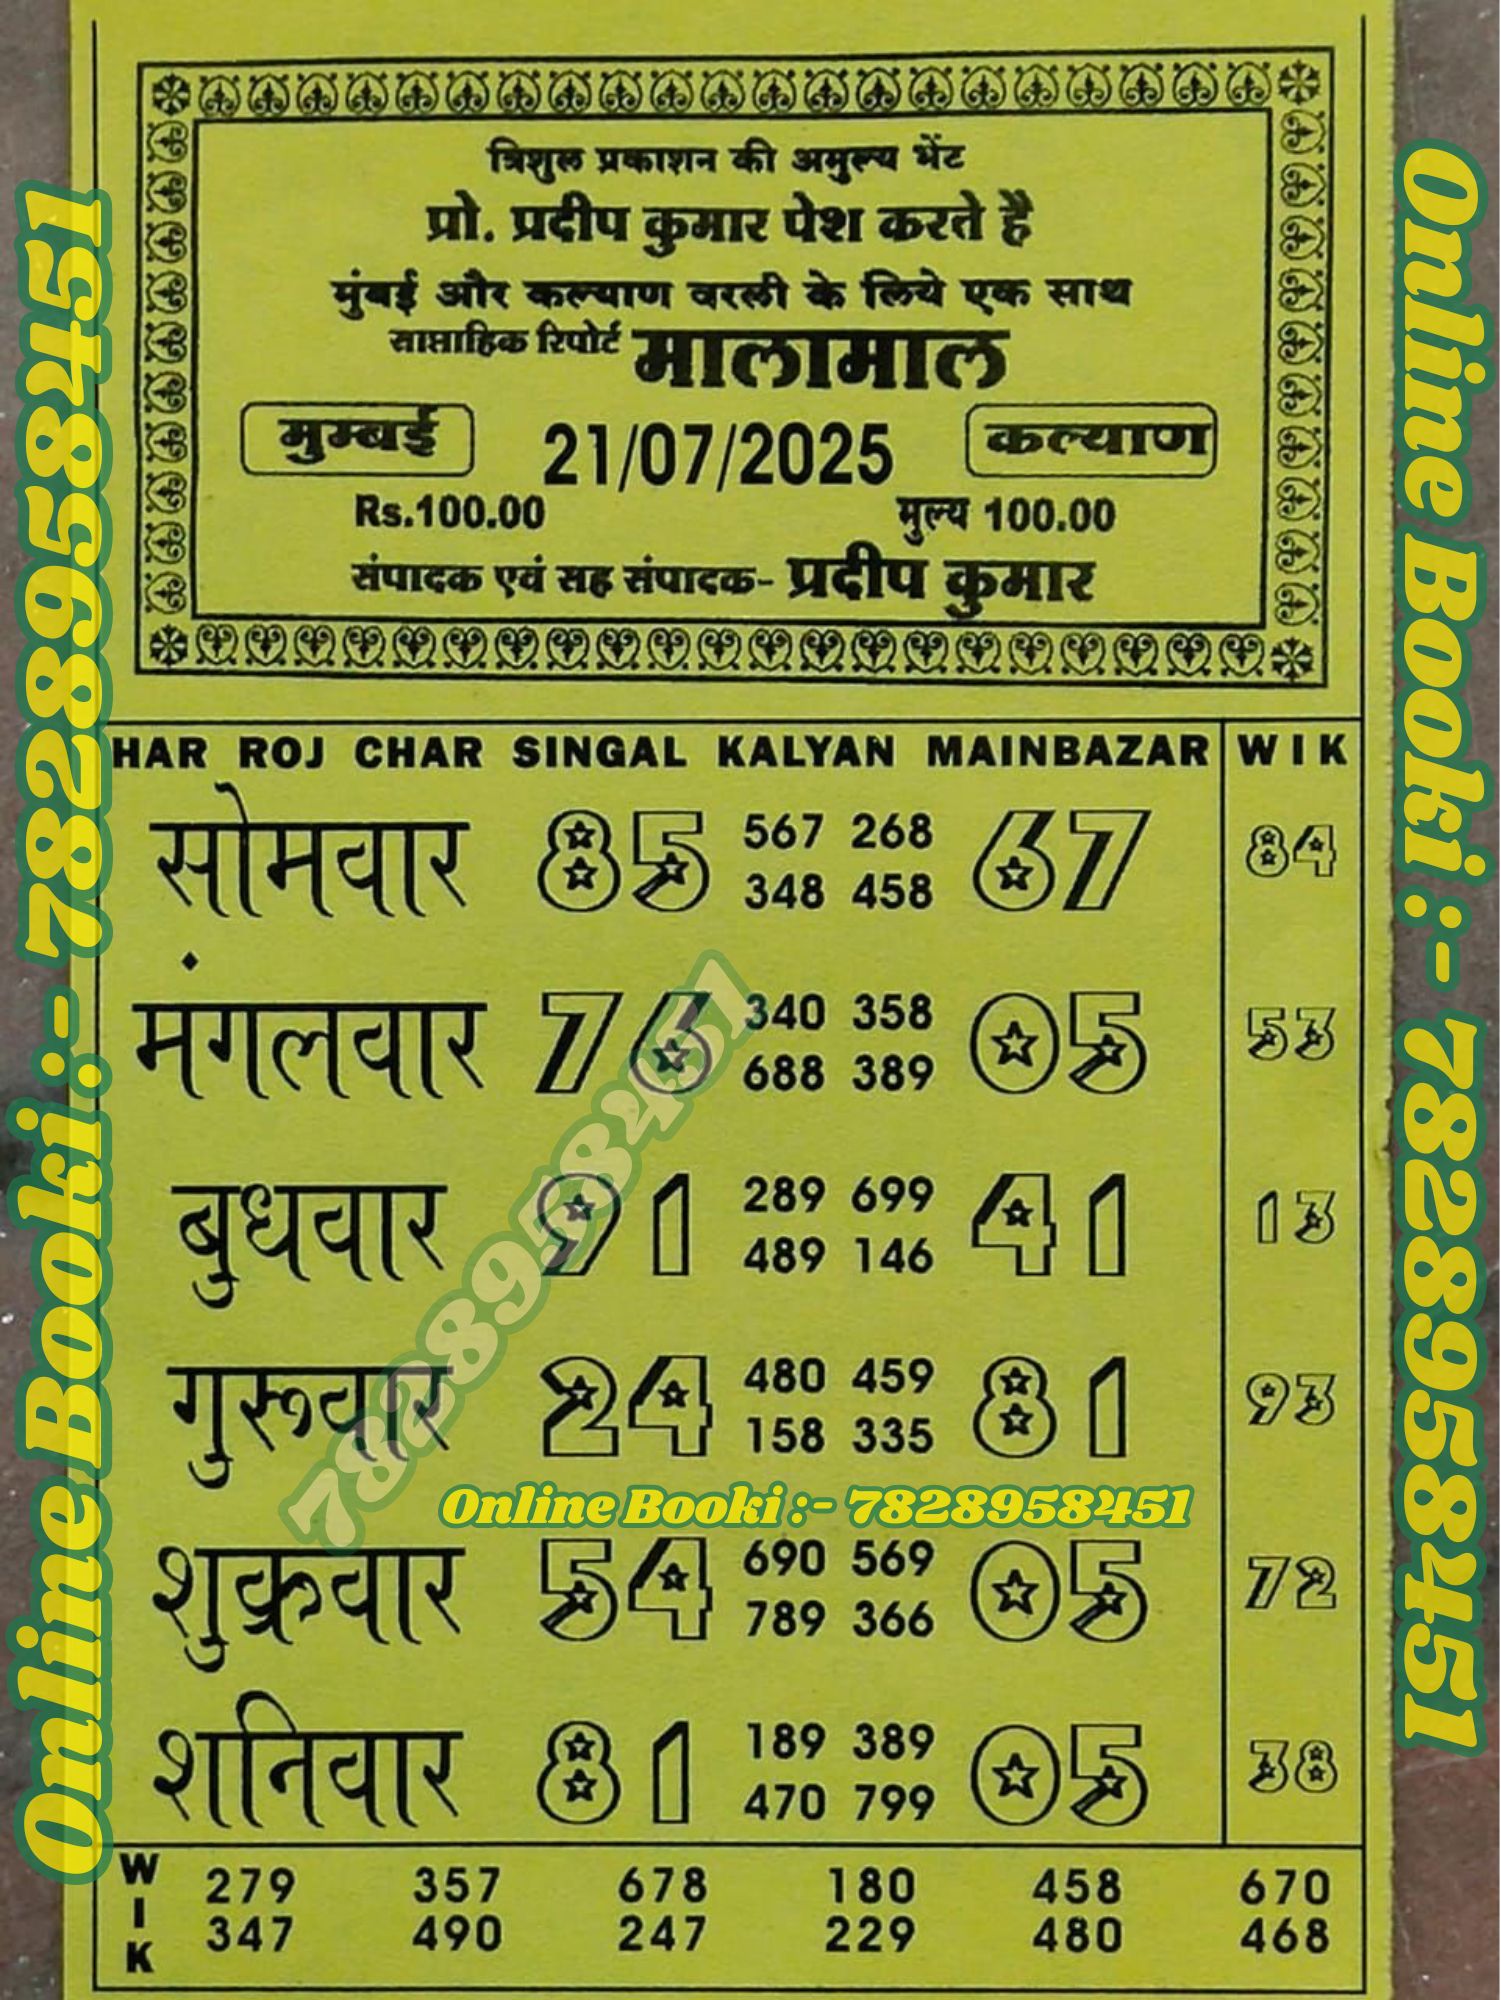 त्रिशुल प्रकाशन की अमुल्य भेंट
प्रो. प्रदीप कुमार पेश करते है
मुंबई और कल्याण वरली के लिये एक साथ
साप्ताहिक रिपोर्ट मालामाल
मुम्बई 21/07/2025 कल्याण
Rs.100.00 मुल्य 100.00
संपादक एवं सह संपादक- प्रदीप कुमार
HAR ROJ CHAR SINGAL KALYAN MAINBAZAR WIK
सोमवार 85 567 268 67 84
348 458
मंगलवार 76 340 358 05 53
688 389
बुधवार 91 289 699 41 13
489 146
गुरूवार 24 480 459 81 93
158 335
शुक्रवार 54 690 569 05 72
789 366
शनिवार 81 189 389 05 38
470 799
WIK 279 357 678 180 458 670
347 490 247 229 480 468
Online Booki :- 7828958451
Online Booki :- 7828958451
7828958451
Online Booki :- 7828958451